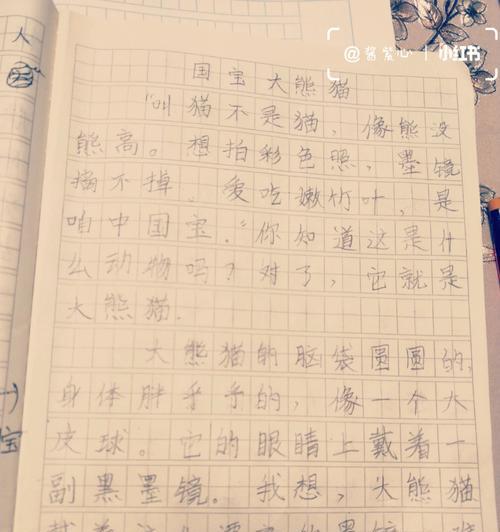 人
@酱紫心 小红书
国宝大熊猫
"叫猫不是猫，像熊没
熊高。想拍彩色照，墨镜
摘不掉。爱吃嫩竹叶，是
咱中国宝。"你知道这是什
么动物吗？对了，它就是
大熊猫.
大熊猫的脑袋圆圆的,
身体胖乎乎的，像一个大
皮球。它的眼睛上戴着一
副黑墨镜。我想，大熊猫
宝